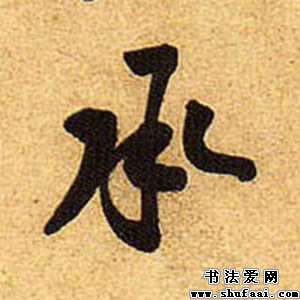 承
书法爱网
www.shufaai.com